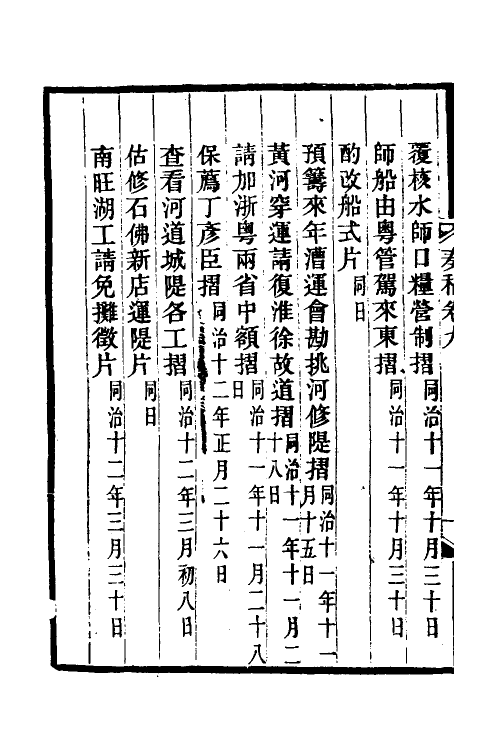 奏稿卷九
覆核水師口糧營制摺同治十一年十月三十日
師船由粵管駕來東摺同治十一年十月三十日
酌改船式片同日
預籌來年漕運會勘挑河修隄摺同治十一年十一月十五日
黃河穿運請復淮徐故道摺同治十一年十一月二十八日
請加浙粵兩省中額摺同治十一年十一月二十八日
保薦丁彥臣摺同治十二年正月二十六日
查看河道城隄各工摺同治十二年三月初八日
估修石佛新店運隄片同日
南旺湖工請免攤徵片同治十二年三月三十日